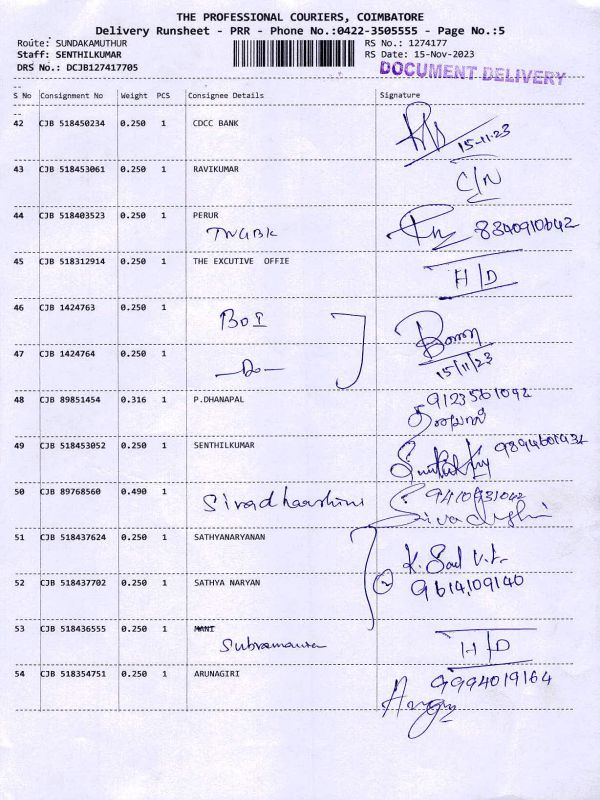 THE PROFESSIONAL COURIERS, COIMBATORE
Delivery Runsheet - PRR - Phone No.:0422-3505555 - Page No.:5
Route: SUNDAKAMUTHUR RS No.: 1274177
Staff: SENTHILKUMAR RS Date: 15-Nov-2023
DRS No.: DCJB127417705 DOCUMENT DELIVERY
--
S No Consignment No Weight PCS Consignee Details Signature
--
42 CJB 518450234 0.250 1 CDCC BANK
15-11-23
43 CJB 518453061 0.250 1 RAVIKUMAR C/N
44 CJB 518403523 0.250 1 PERUR
TNGBK 8340910642
45 CJB 518312914 0.250 1 THE EXCUTIVE OFFIE H/D
46 CJB 1424763 0.250 1 BOI
47 CJB 1424764 0.250 1 —Do—
15/11/23
48 CJB 89851454 0.316 1 P.DHANAPAL 9123561092
49 CJB 518453052 0.250 1 SENTHILKUMAR 9894601432
50 CJB 89768560 0.490 1 Sivadharshini
51 CJB 518437624 0.250 1 SATHYANARYANAN
52 CJB 518437702 0.250 1 SATHYA NARYAN 2 9614109140
53 CJB 518436555 0.250 1 MANI
H/D
54 CJB 518354751 0.250 1 ARUNAGIRI 9994019164